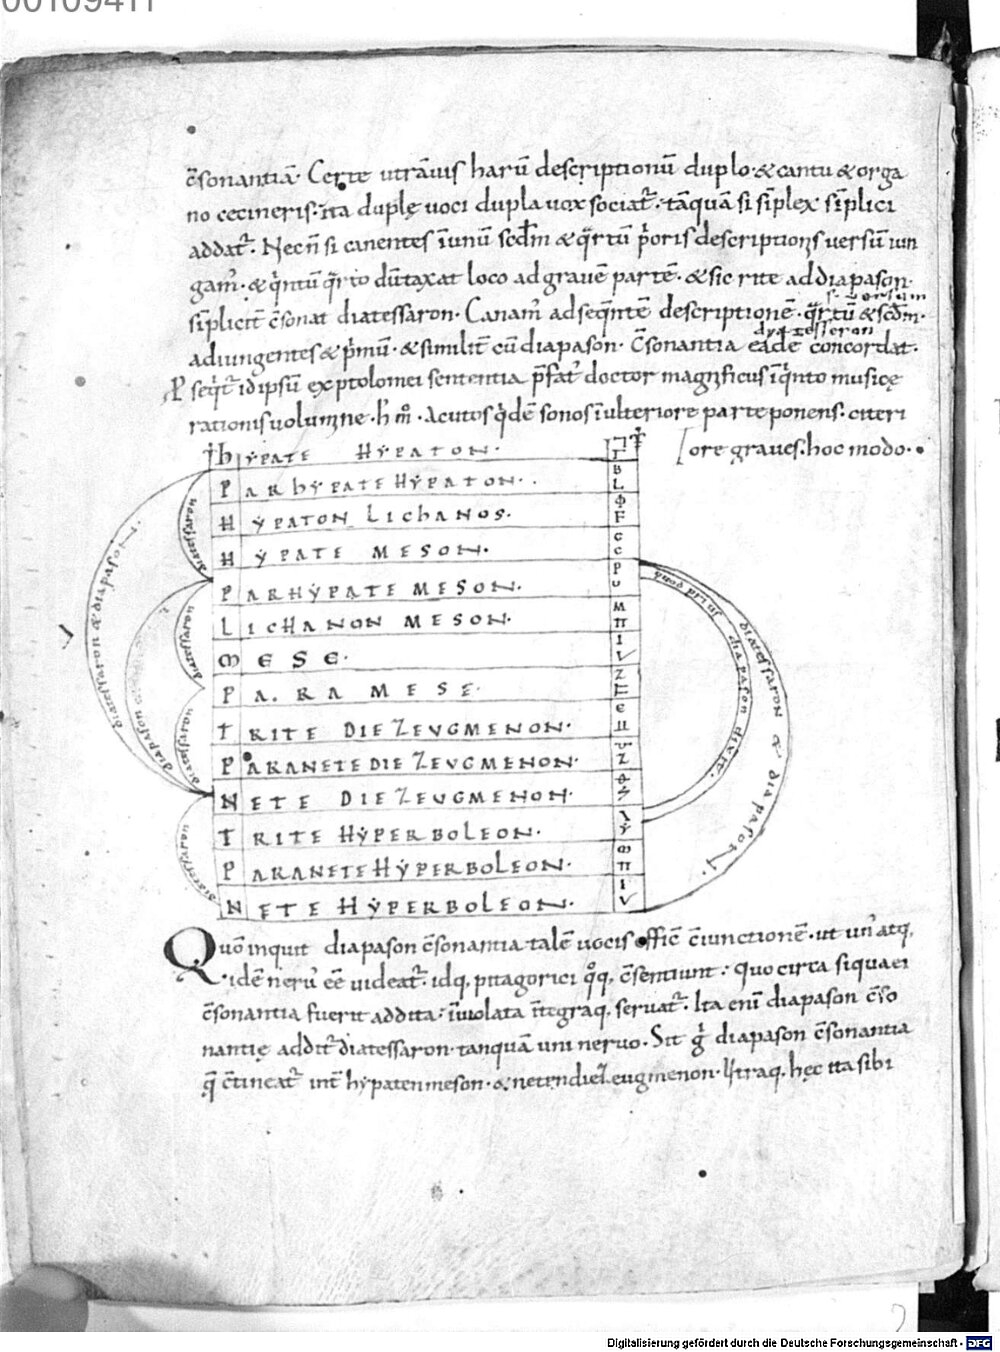 00109411
c̄sonantiā. Certe utrāuis harū descriptionū duplo & cantu & orga
no cecineris. ita duplę uoci dupla uox sociat᷑. tāquā si sīplex sīplici
addat᷑. Necn̄ si canentes īunū scd̄m & q̄rtū p̄oris descriptionis uersū iun
gam᷒. & q̊ntū q̄rto dūtaxat loco ad grauē partē. & sic rite ad diapason.
s. uersum
sīplicit̄ c̄sonat diatessaron. Canam᷒ ad seq̄ntē descriptionē. q̄rtū & scd̄m.
dyatesseron
adiungentes & p̄mū. & similit̄ cū diapason. C̄sonantia eadē concordat.
P seq̇t᷑ id ipsū ex ptolomei sententia p̄fat᷒ doctor magnificus īq̇nto musicę
rationis uolumine. h̊ m̊. Acutos q̇dē sonos ī ulteriore parte ponens. citeri
ore graues. hoc modo.
HYPATE HYPATON.
PARHYPATE HYPATON.
HYPATON LICHANOS.
HYPATE MESON.
PARHYPATE MESON.
LICHANON MESON.
MESE.
PARAMESE.
TRITE DIEZEUGMENON.
PARANETE DIEZEUGMENON.
NETE DIEZEUGMENON.
TRITE HYPERBOLEON.
PARANETE HYPERBOLEON.
NETE HYPERBOLEON.
diatessaron & diapason.
diapason
diatessaron
diatessaron
diatessaron
diatessaron
quod prius diapason
diatessaron & diapason
Quō inquit diapason c̄sonantia talē uocis effic̄ c̄iunctionē. ut un᷒ atq,
idē neru᷒ eē uideat᷑. idq, pitagorici q̊q, c̄sentiunt. quo circa siqua ei
c̄sonantia fuerit addita. īuiolata īt̄graq, seruat᷑. Ita enī diapason c̄so
nantię addit᷑ diatessaron. tanquā uni neruo. Sit g̊ diapason c̄sonantia
q̄ c̄tineat᷑ int̄ hypaten meson. & neten diezeugmenon. Utraq, hęc ita sibi
Digitalisierung gefördert durch die Deutsche Forschungsgemeinschaft - DFG